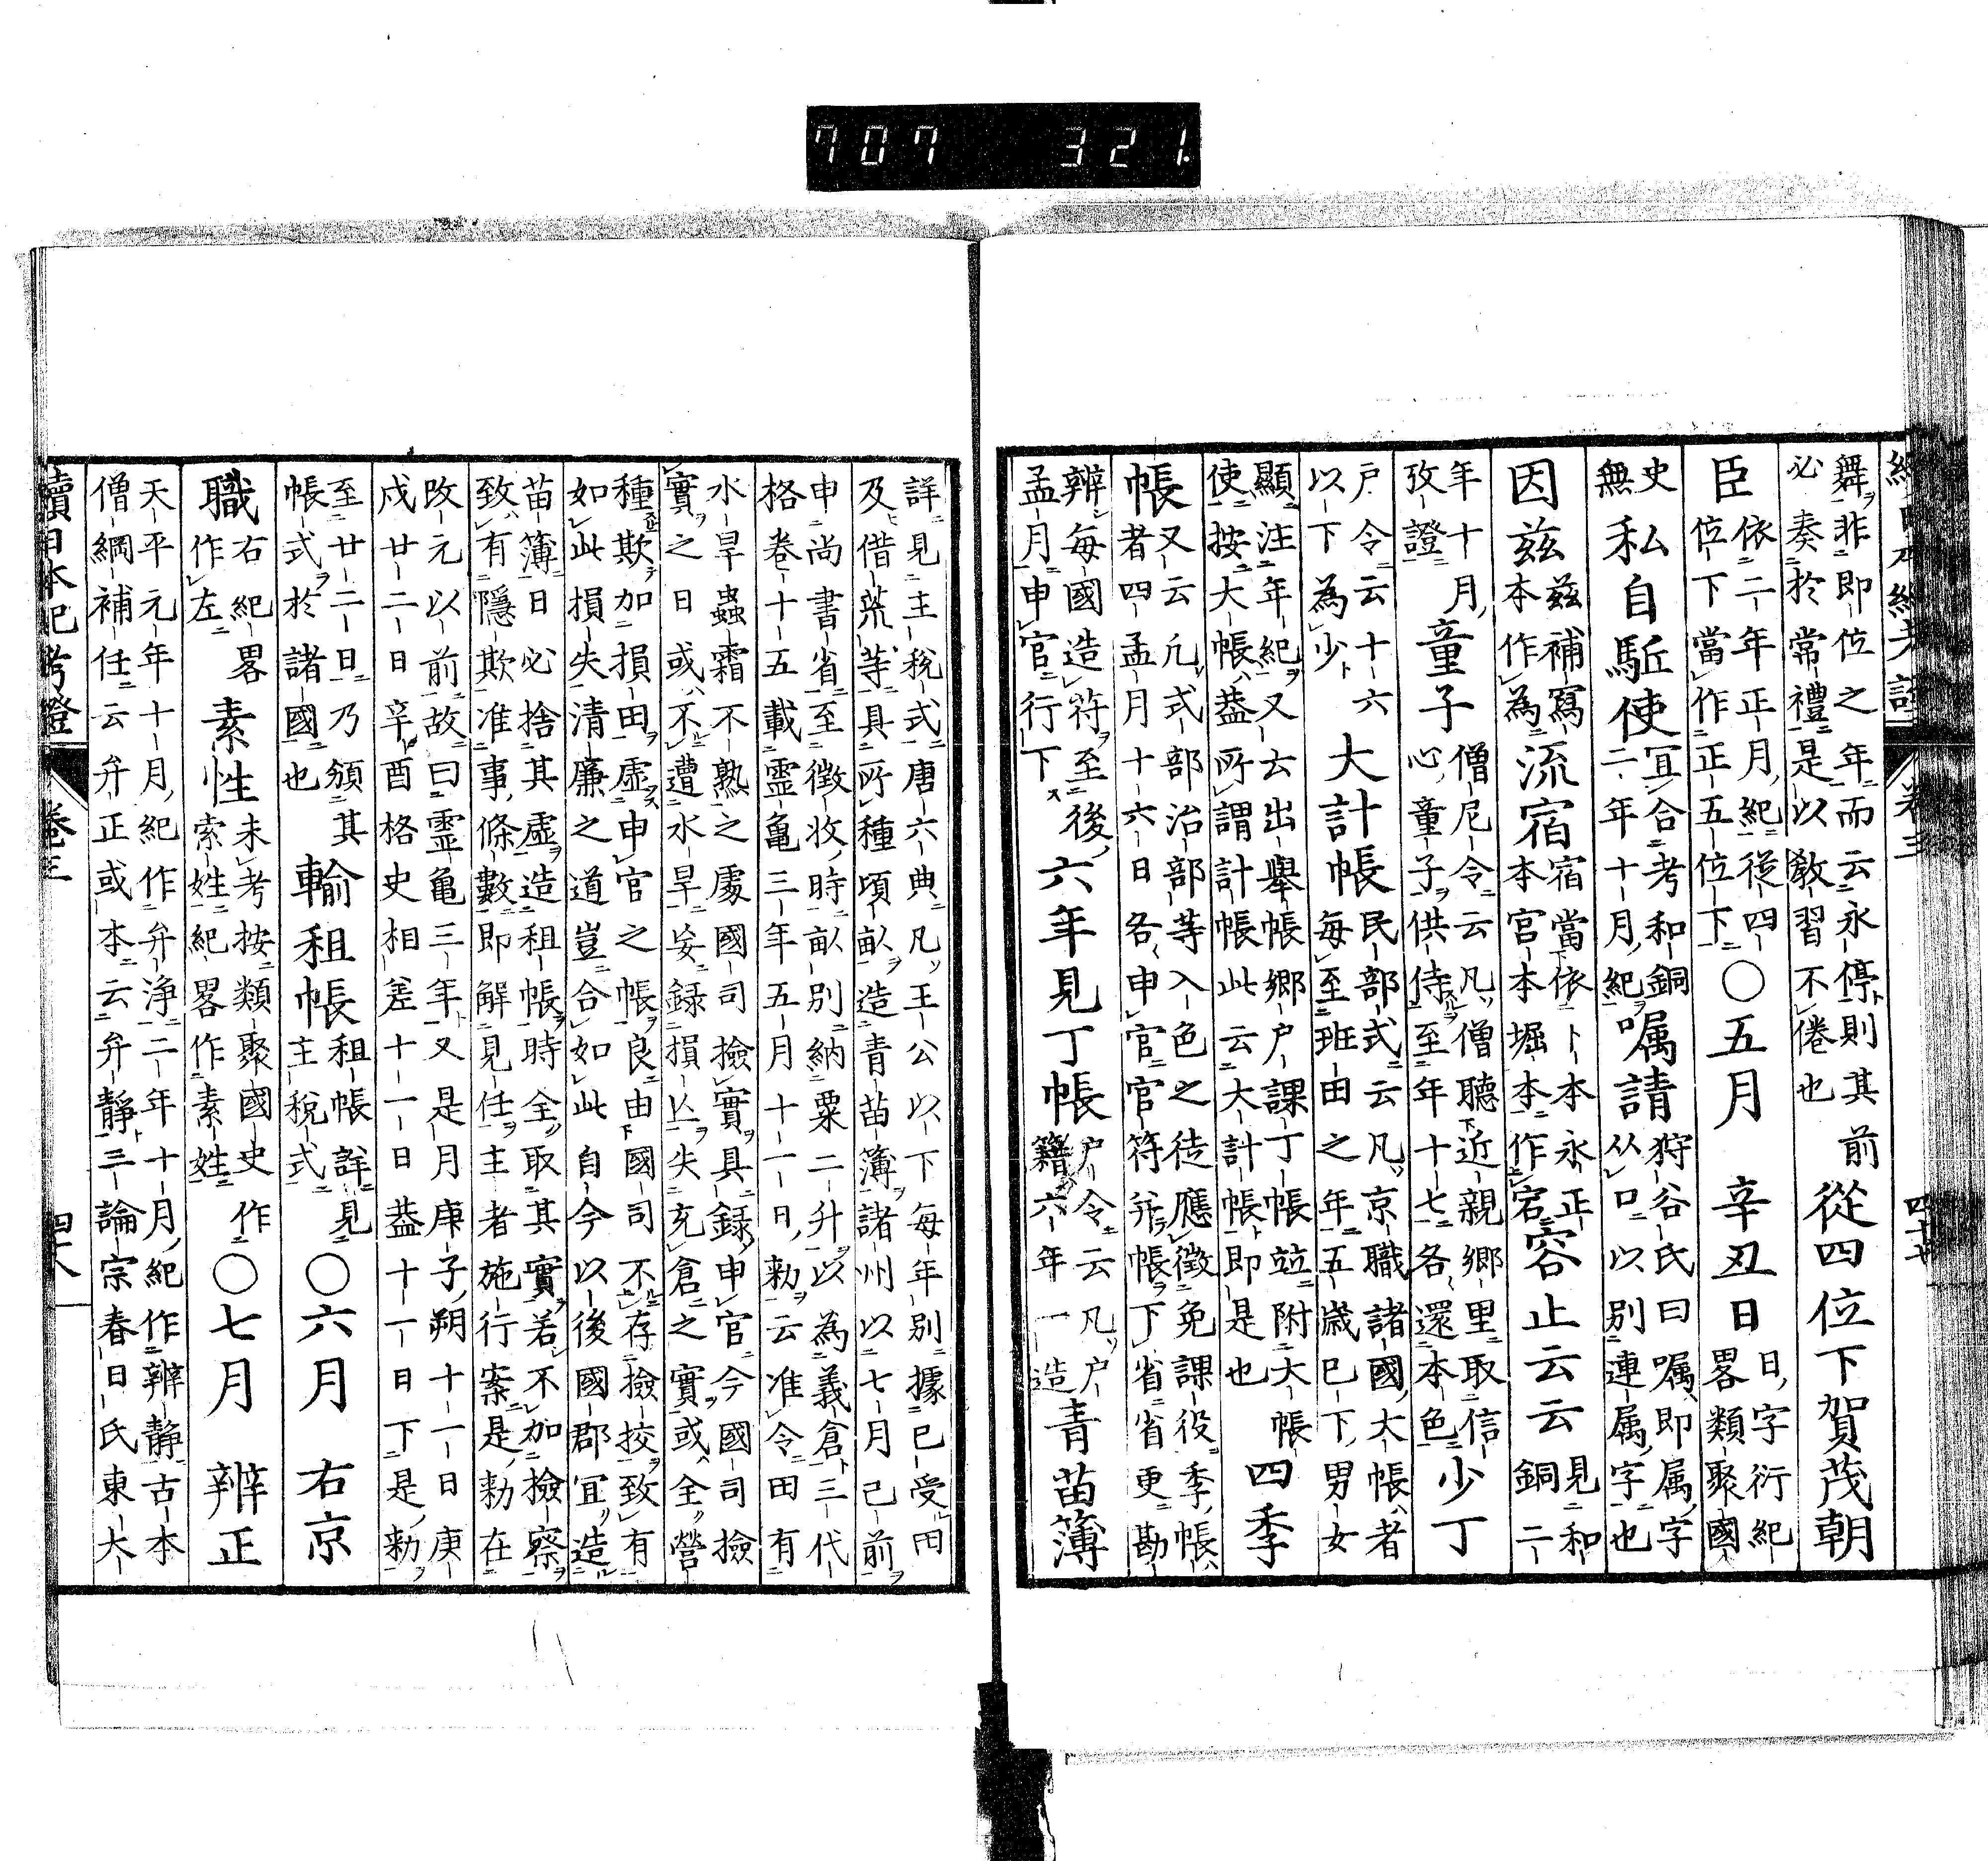 707 321.
續日本紀考證 卷三 四十七
舞非即位之年而云永停則其前
必奏於常禮是以敎習不倦也
從四位下賀茂朝
臣
依二年正月紀從四
位下當作正五位下
○五月 辛丑日
日字衍紀
畧類聚國
史
無
私自駈使
宜合考和銅
二年十月紀
嘱請
狩谷氏曰嘱即属字
从口以別連属字也
因兹
兹補寫
本作為
流宿
宿當依卜本永正
本宮本堀本作宕
容止云云
見和
銅二
年十月
攷證
童子
僧尼令云凡僧聽近親郷里取信
心童子供侍至年十七各還本色
少丁
戸令云十六
以下為少
大計帳
民部式云凡京職諸國大帳者
每至班田之年五歳已下男女
顯注年紀又云出擧帳郷戸課丁帳竝附大帳
使按大帳葢所謂計帳此云大計帳即是也
四季
帳
又云凡式部治部等入色之徒應徵免課役季帳
者四孟月十六日各申官官符并帳下省省更勘
辨每國造符至後
孟月申官行下
六年見丁帳
戸令云凡戸
籍六年一造
青苗簿
詳見主税式唐六典凡王公以下每年別據已受田
及借荒等具所種頃畝造青苗簿諸州以七月已前
申尚書省至徵收時畝別納粟二升以為義倉三代
格卷十五載靈亀三年五月十一日勅云准令田有
水旱蟲霜不熟之處國司撿實具録申官今國司撿
實之日或不遭水旱妄録損亡失充倉之實或全營
種欺加損田虛申官之帳良由國司不存撿挍致有
如此損失清廉之道豈合如此自今以後國郡宜造
苗簿日必捨其虛造租帳時全取其實若不加撿察
致有隱欺准事條數即解見任主者施行案是勅在
改元以前故曰靈亀三年又是月庚子朔十一日庚
戌廿二日辛酉格史相差十一日葢十一日下是勅
至廿二日乃頒其
帳式於諸國也
輸租帳
租帳詳見
主税式
○六月 右京
職
右紀畧
作左
素性
未考按類聚國史作
索姓紀畧作素姓
○七月 辨正
天平元年十月紀作弁浄二年十月紀作辨静古本
僧綱補任云弁正或本云弁静三論宗春日氏東大
續日本紀考證 卷三 四十八